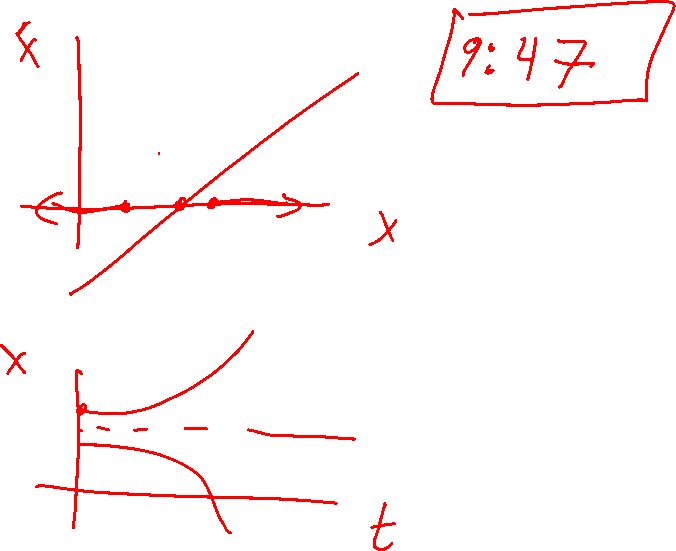 ẋ
9:47
x
x
t